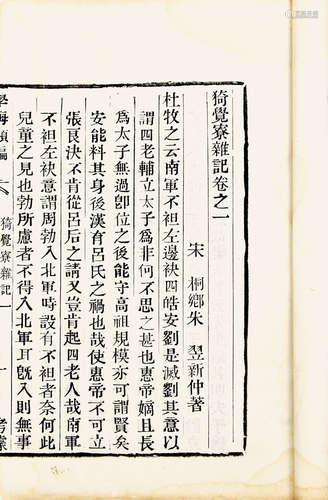 猗覺寮雜記卷之一
宋 桐鄉朱 翌新仲著
杜牧之云南軍不袒左邊袂四皓安劉是滅劉其意以
謂四老輔立太子為非何不思之甚也惠帝嫡且長
為太子無過即位之後能守高祖規模亦可謂賢矣
安能料其身後漢有呂氏之禍也哉使惠帝不可立
張良決不肯從呂后之請又豈肯起四老人哉南軍
不袒左袂意謂周勃入北軍時設有不袒者奈何此
兒童之見也勃所慮者不得入北軍耳旣入則無事
學海類編
猗覺寮雜記
一
考據